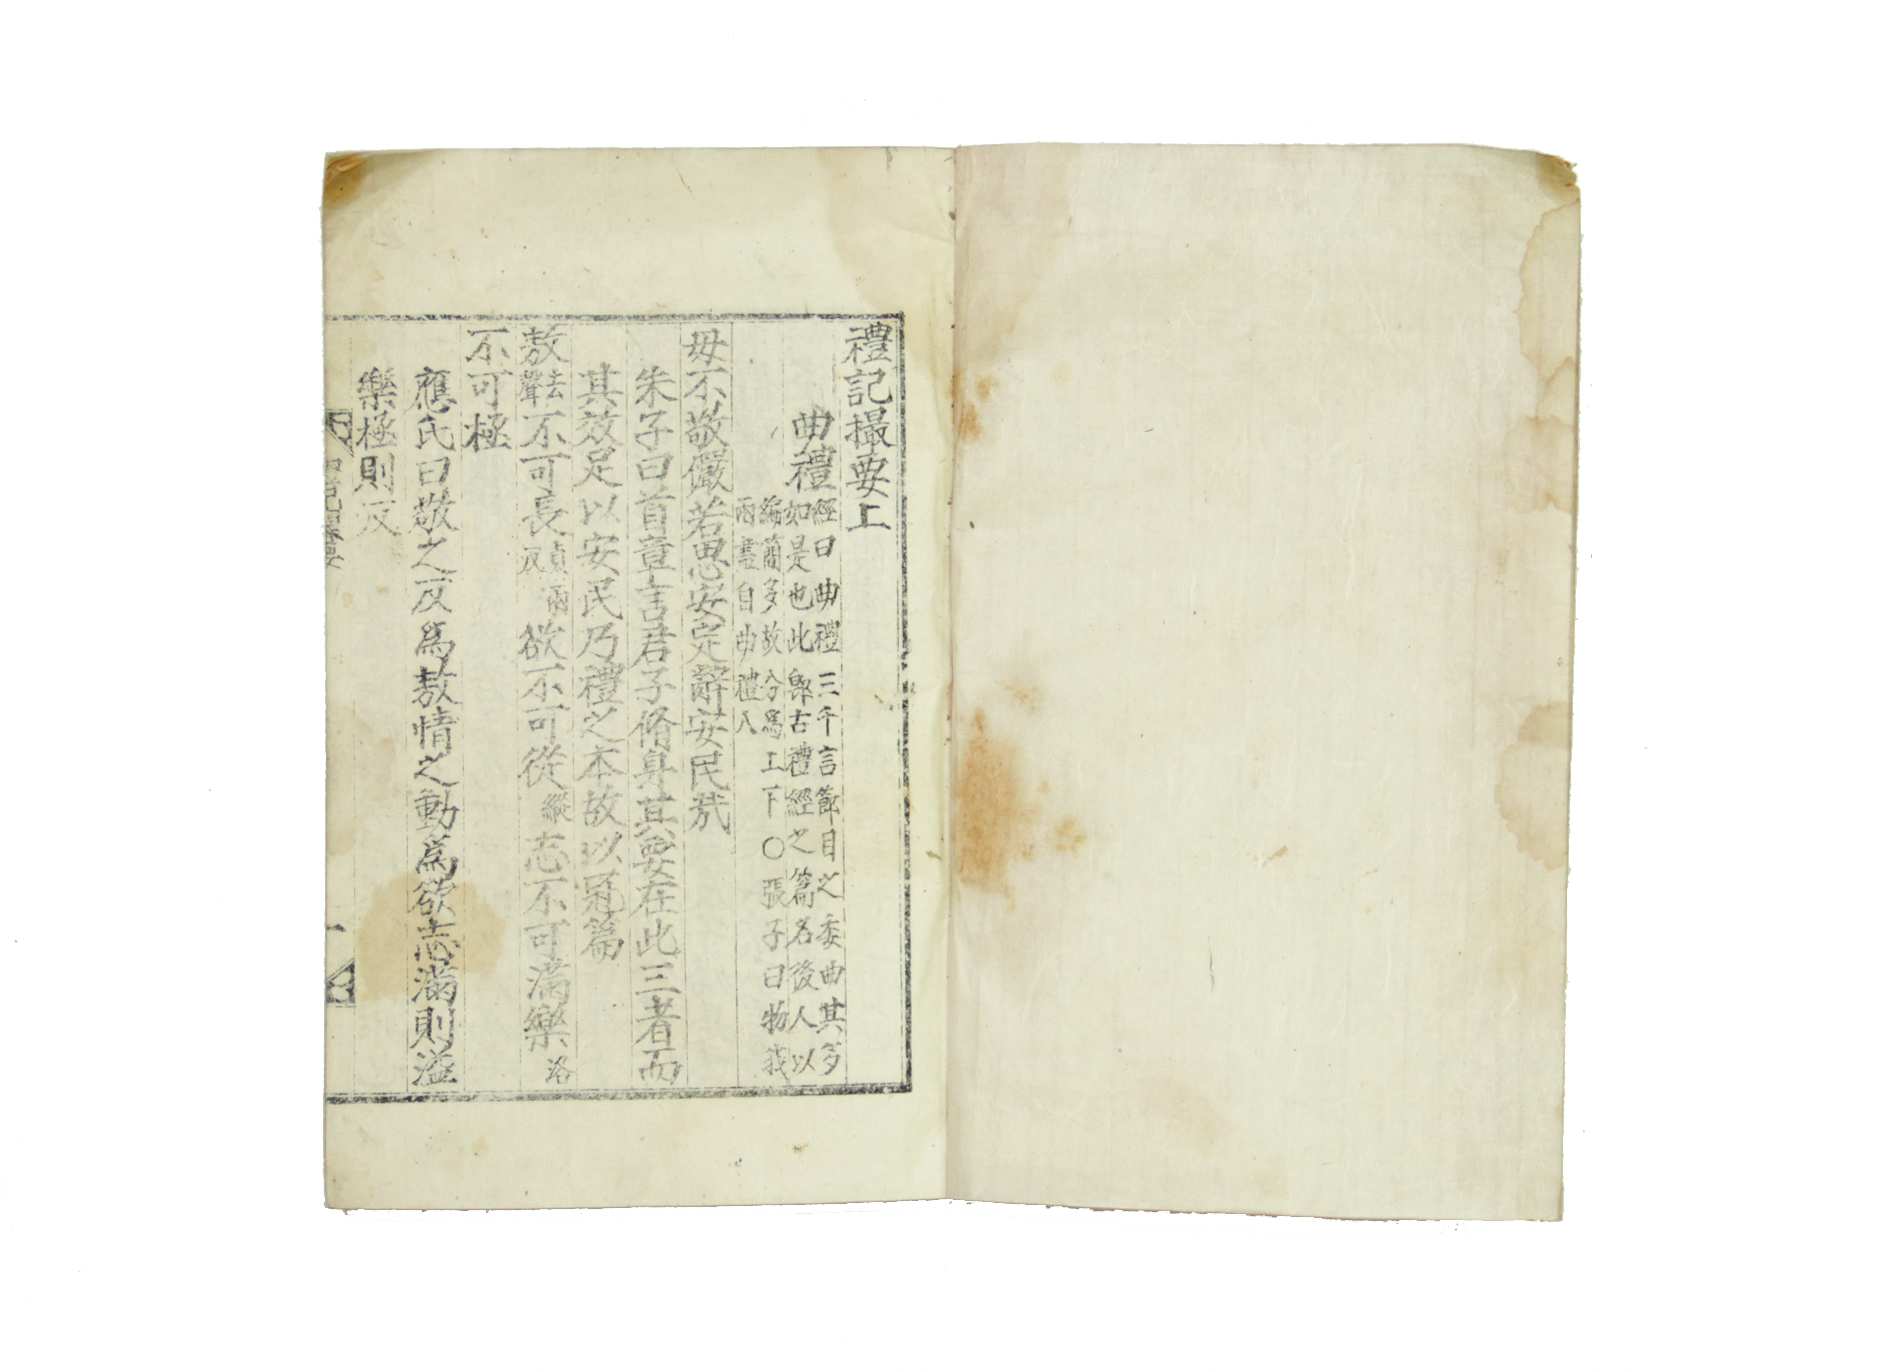 禮記撮要上
曲禮
經曰曲禮三千言節目之委曲其多
如是也此即古禮經之篇名後人以
編簡多故分爲上下○張子曰物我
兩盡自曲禮入
毋不敬儼若思安定辭安民㢤
朱子曰首章言君子脩身其要在此三者而
其效足以安民乃禮之本故以冠篇
敖去聲不可長貞兩反欲不可從縱志不可滿樂洛
不可極
應氏曰敬之反爲敖情之動爲欲志滿則溢
樂極則反